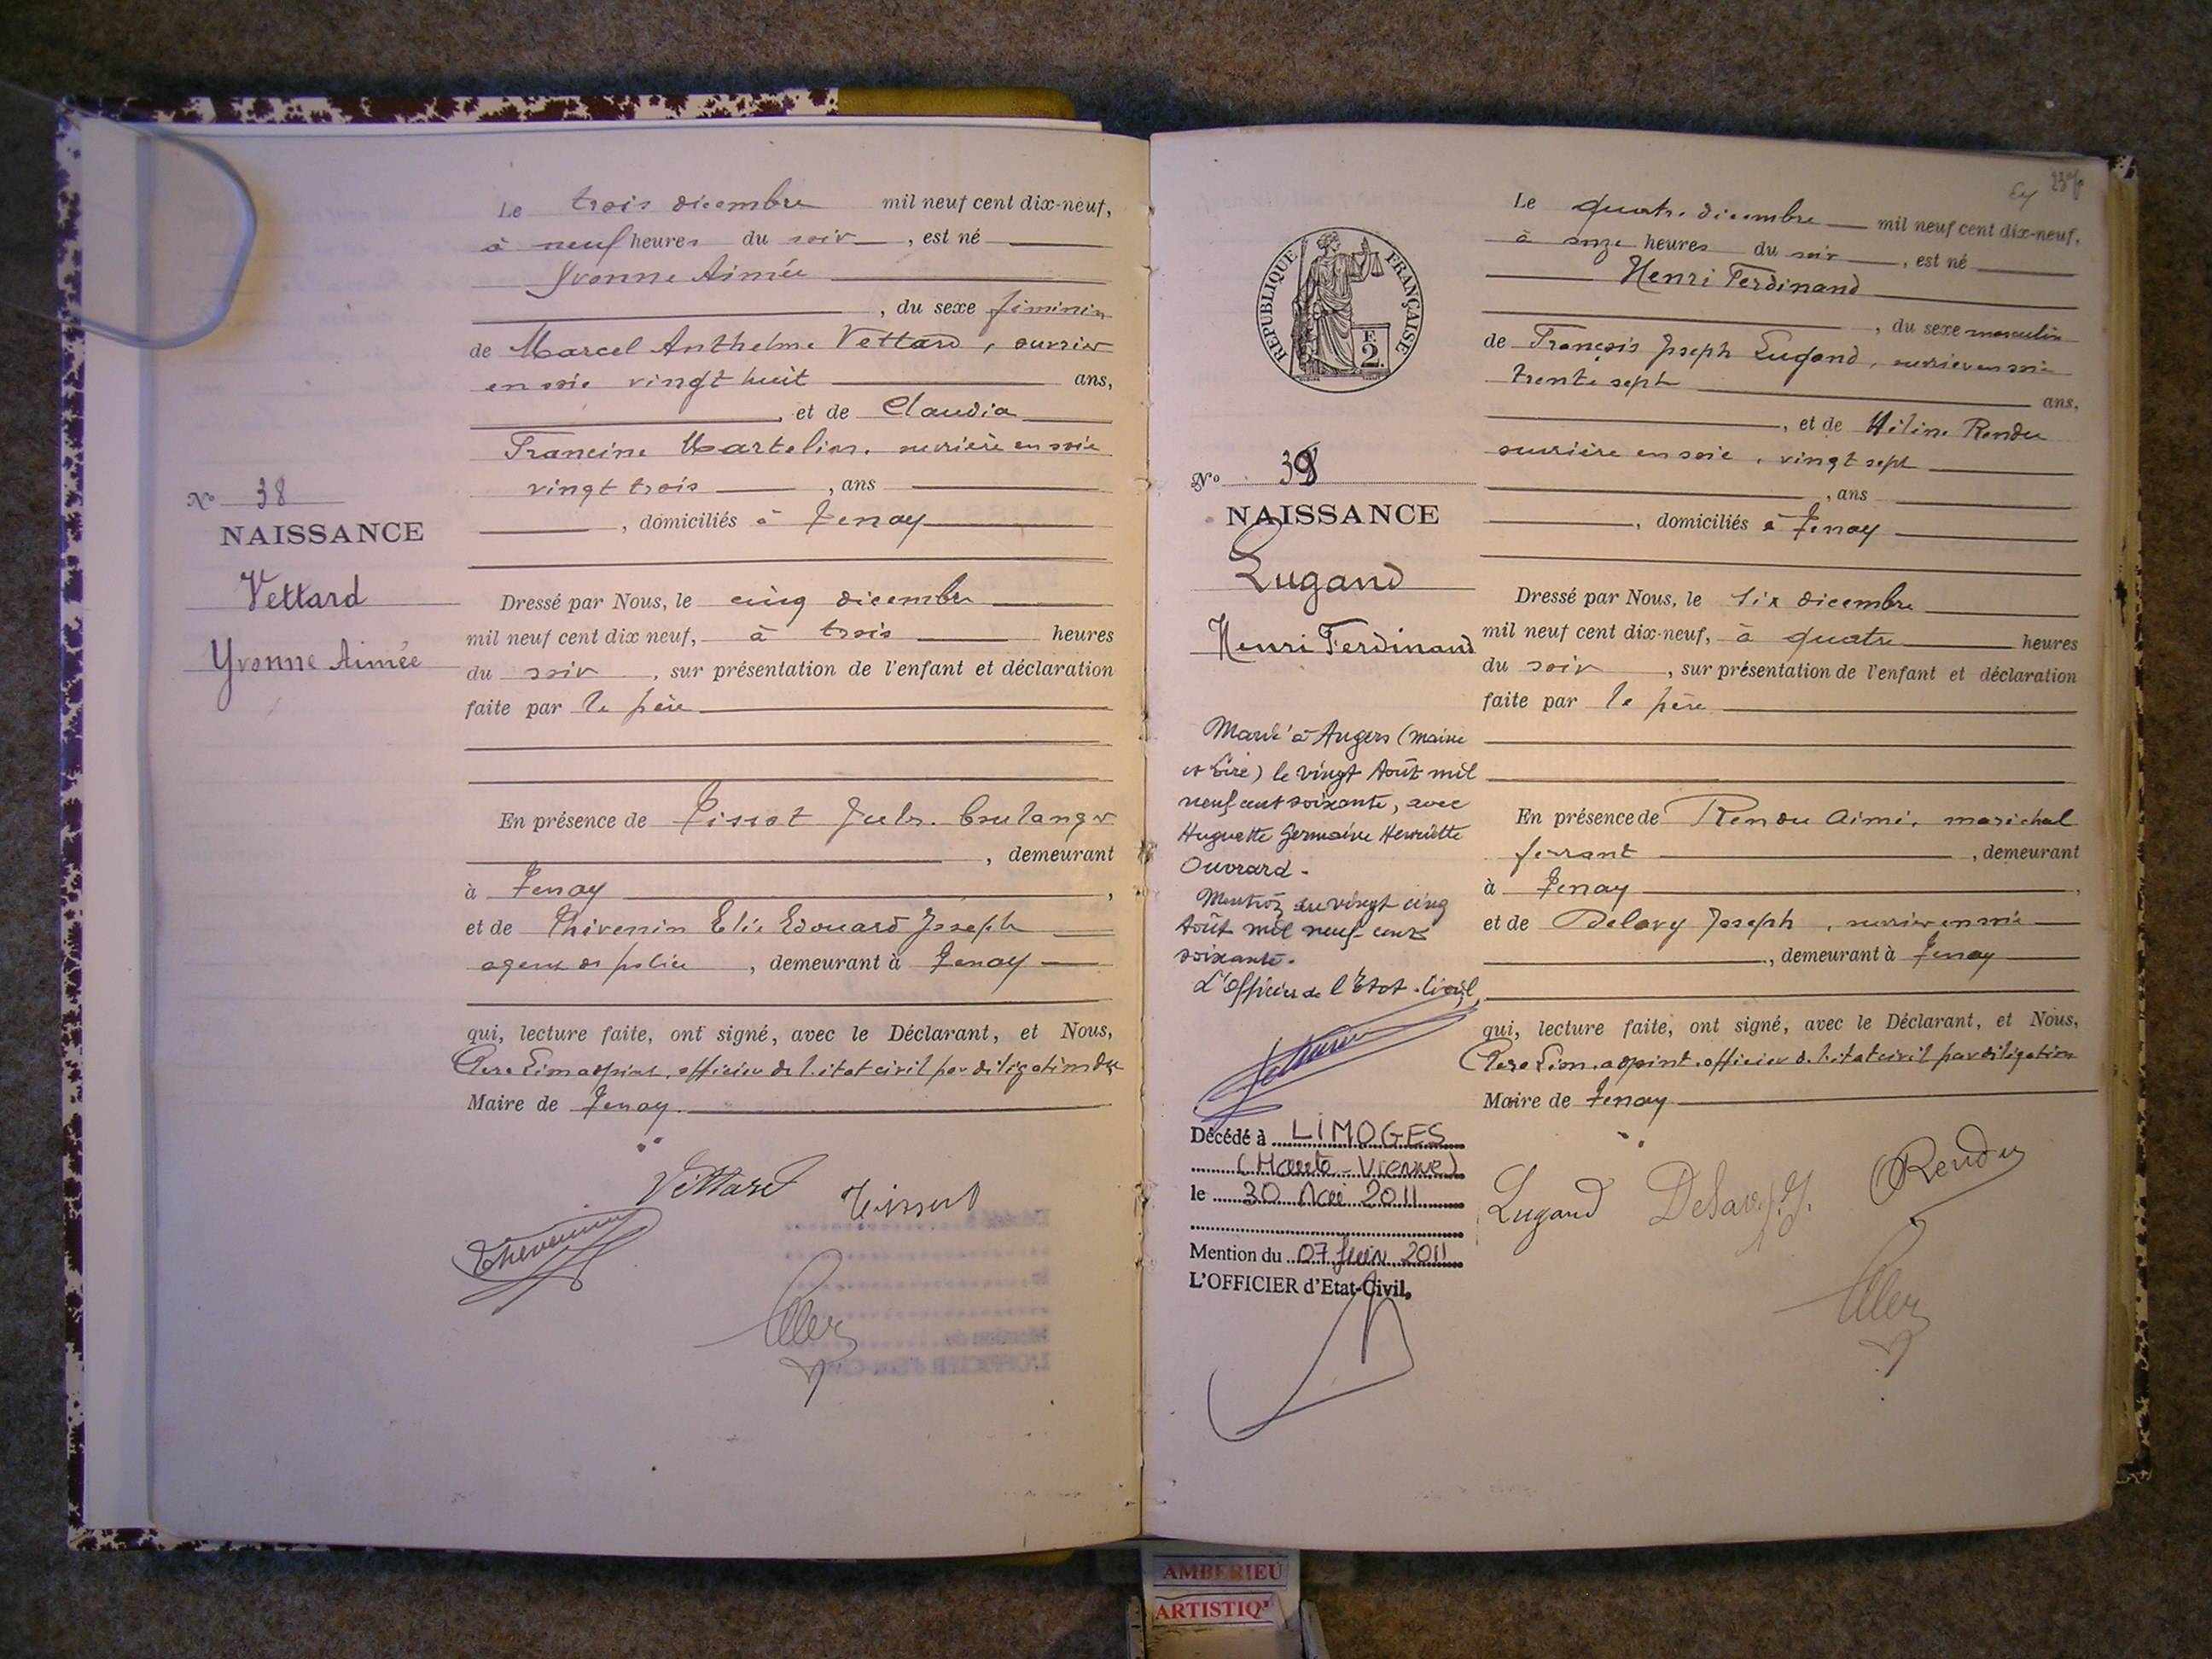 Le trois décembre mil neuf cent dix-neuf,
à neuf heures du soir, est né
Yvonne Aimée
, du sexe féminin
de Marcel Anthelme Vettard, ouvrier
en soie vingt huit ans,
, et de Claudia
Francine Martelin, ouvrière en soie
vingt trois, ans
, domiciliés à Tenay
No 38
NAISSANCE
Vettard
Yvonne Aimée
Dressé par Nous, le cinq décembre
mil neuf cent dix neuf, à trois heures
du soir, sur présentation de l'enfant et déclaration
faite par le père
En présence de Tissot Jules, boulanger
, demeurant
à Tenay,
et de Thévenin Elie Edouard Joseph
agent de police, demeurant à Tenay
qui, lecture faite, ont signé, avec le Déclarant, et Nous,
adjoint, officier de l'état civil par délégation du
Maire de Tenay.
Vettard
Tissot
Thevenin
237
RÉPUBLIQUE FRANÇAISE
F.
2.
Le quatre décembre mil neuf cent dix-neuf,
à onze heures du soir, est né
Henri Ferdinand
, du sexe masculin
de François Joseph Lugand, ouvrier en soie
trente sept ans,
, et de Héline Rendu
ouvrière en soie, vingt sept
, ans
, domiciliés à Tenay
No 39
NAISSANCE
Lugand
Henri Ferdinand
Marié à Angers (Maine
et Loire) le vingt Août mil
neuf cent soixante, avec
Huguette Germaine Henriette
Ouvrard.
Mention du vingt cinq
Août mil neuf cent
soixante.
L'Officier de l'Etat-Civil,
Décédé à LIMOGES
(Haute-Vienne)
le 30 Mai 2011
Mention du 07 Juin 2011
L'OFFICIER d'Etat-Civil,
Dressé par Nous, le six décembre
mil neuf cent dix-neuf, à quatre heures
du soir, sur présentation de l'enfant et déclaration
faite par le père
En présence de Rendu Aimé, maréchal
ferrant, demeurant
à Tenay,
et de Delavy Joseph, ouvrier en soie
, demeurant à Tenay
qui, lecture faite, ont signé, avec le Déclarant, et Nous,
adjoint, officier de l'état civil par délégation
Maire de Tenay
Lugand
Rendu
AMBERIEU
ARTISTIQ